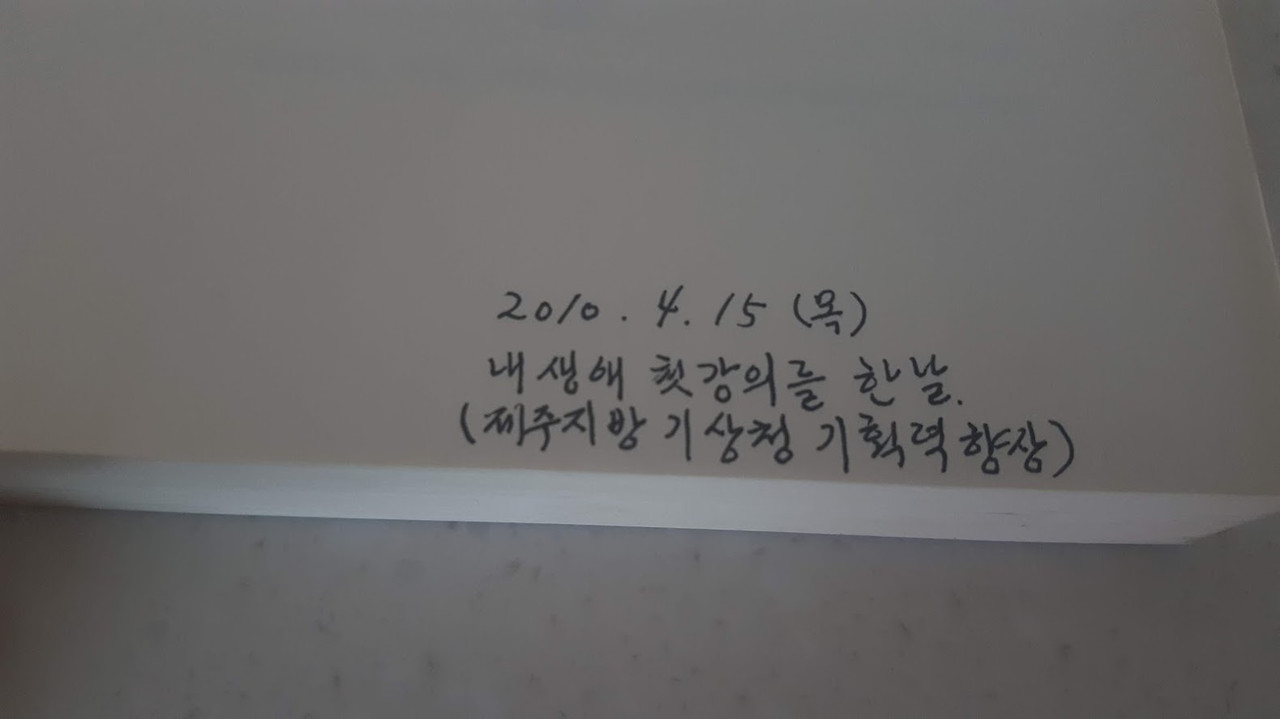 2010. 4. 15 (목)
내 생애 첫강의를 한 날.
(제주지방 기상청 기획력 향상)